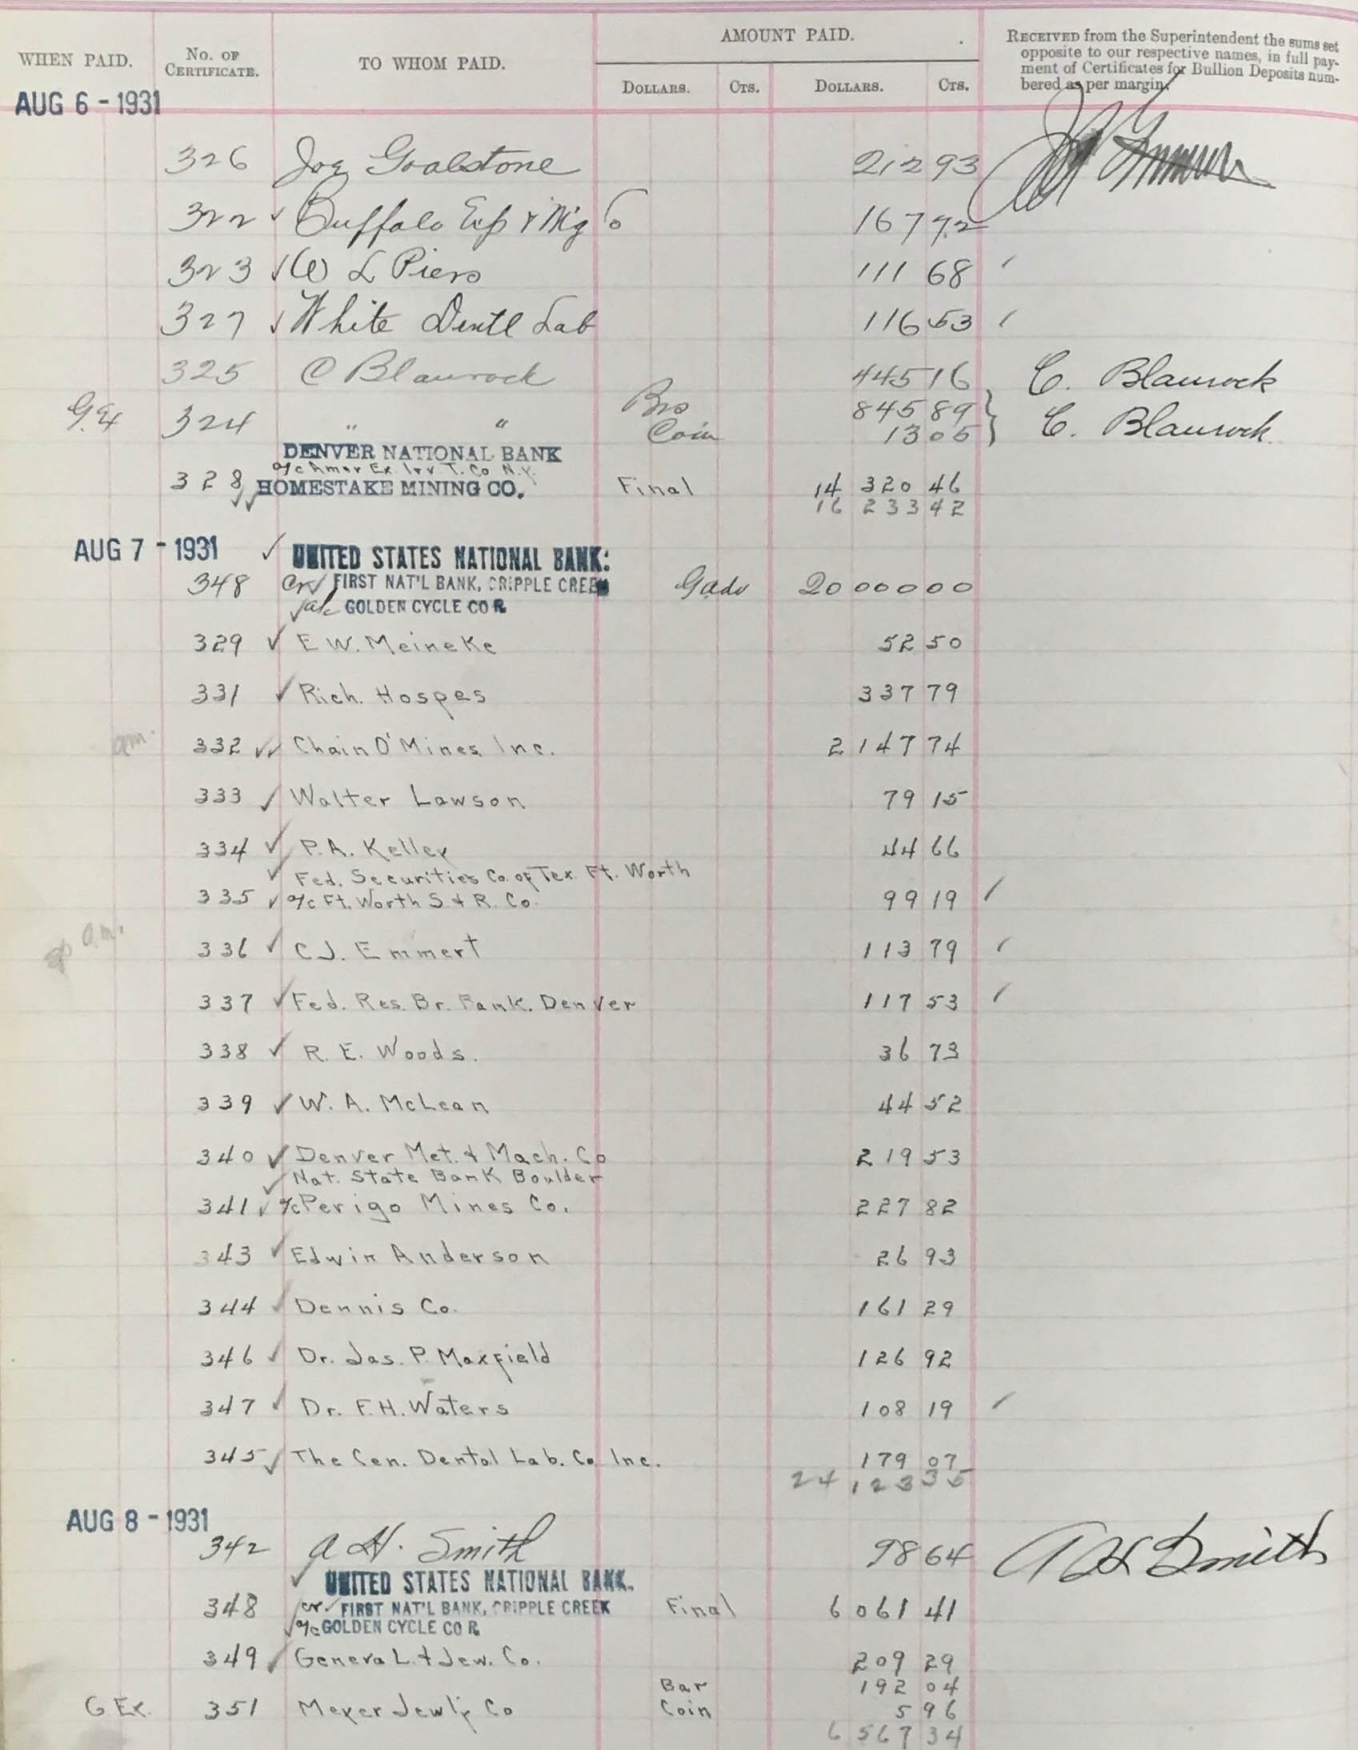 WHEN PAID. No. of Certificate. TO WHOM PAID. AMOUNT PAID. Received from the Superintendent the sums set
opposite to our respective names, in full pay-
ment of Certificates for Bullion Deposits num-
bered as per margin.
Dollars. Cts. Dollars. Cts.
AUG 6 - 1931
326 Joe Goalstone 212 93
322 ✓ Buffalo Exp & M'g Co 167 72
323 ✓ W L Piers 111 68
327 ✓ White Dentl Lab 116 53
325 C Blaurock 445 16 C. Blaurock
845 89
324 " " Coin 13 05 C. Blaurock
DENVER NATIONAL BANK
a/c Amer Ex Irv T. Co N.Y.
328 ✓✓ HOMESTAKE MINING CO. Final 14 320 46
16 233 42
AUG 7 - 1931 ✓ UNITED STATES NATIONAL BANK:
348 cr ✓ FIRST NAT'L BANK, CRIPPLE CREEK 20 000 00
✓ a/c GOLDEN CYCLE COR
329 ✓ E W. Meineke 52 50
331 ✓ Rich. Hospes 337 79
332 ✓✓ Chain O' Mines Inc. 2 147 74
333 ✓ Walter Lawson 79 15
334 ✓ P. A. Kelley 44 66
✓ Fed. Securities Co. of Tex. Ft. Worth
335 ✓ a/c Ft. Worth S. & R. Co. 99 19
a.m.
336 ✓ C J. Emmert 113 79
337 ✓ Fed. Res. Br. Bank. Denver 117 53
338 ✓ R. E. Woods. 36 73
339 ✓ W. A. McLean 44 52
340 ✓ Denver Met. & Mach. Co 219 53
✓ Nat. State Bank Boulder
341 ✓ a/c Perigo Mines Co. 227 82
343 ✓ Edwin Anderson 26 93
344 ✓ Dennis Co. 161 29
346 ✓ Dr. Jas. P. Maxfield 126 92
347 ✓ Dr. F. H. Waters 108 19
345 ✓ The Cen. Dental Lab. Co Inc. 179 07
24 123 35
AUG 8 - 1931
342 A H. Smith 98 64 A H Smith
✓ UNITED STATES NATIONAL BANK.
348 cr. ✓ FIRST NAT'L BANK, CRIPPLE CREEK Final 6 061 41
✓ a/c GOLDEN CYCLE COR
349 ✓ Geneva L. & Jew. Co. 209 29
Bar 192 04
G Ex. 351 Meyer Jewl'y Co Coin 5 96
6 567 34